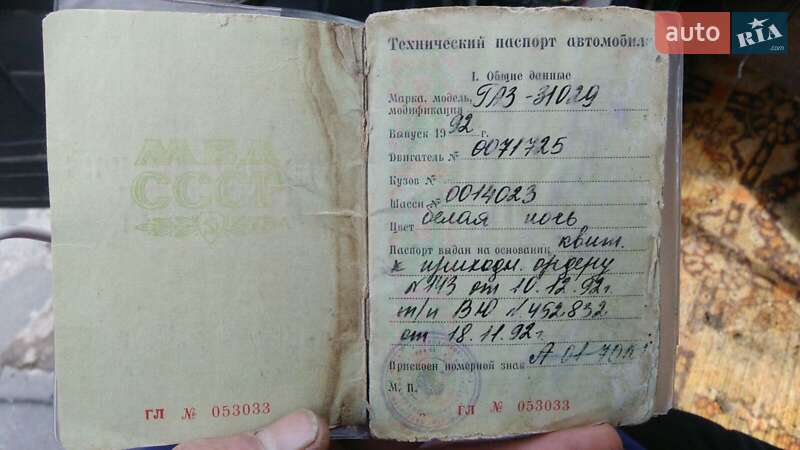 МВД
СССР
ГЛ № 053033
auto RIA.com
Технический паспорт автомобиля
I. Общие данные
Марка, модель, ГАЗ-31029
модификация
Выпуск 1992 г.
Двигатель № 0071725
Кузов №
Шасси № 0014023
Цвет белая ночь
Паспорт выдан на основании квит.
к приходн. ордеру
№ 943 от 10.12.92г.
т/п ВЮ № 452832
от 18.11.92г.
Присвоен номерной знак А 01-70
М. П.
ГЛ № 053033